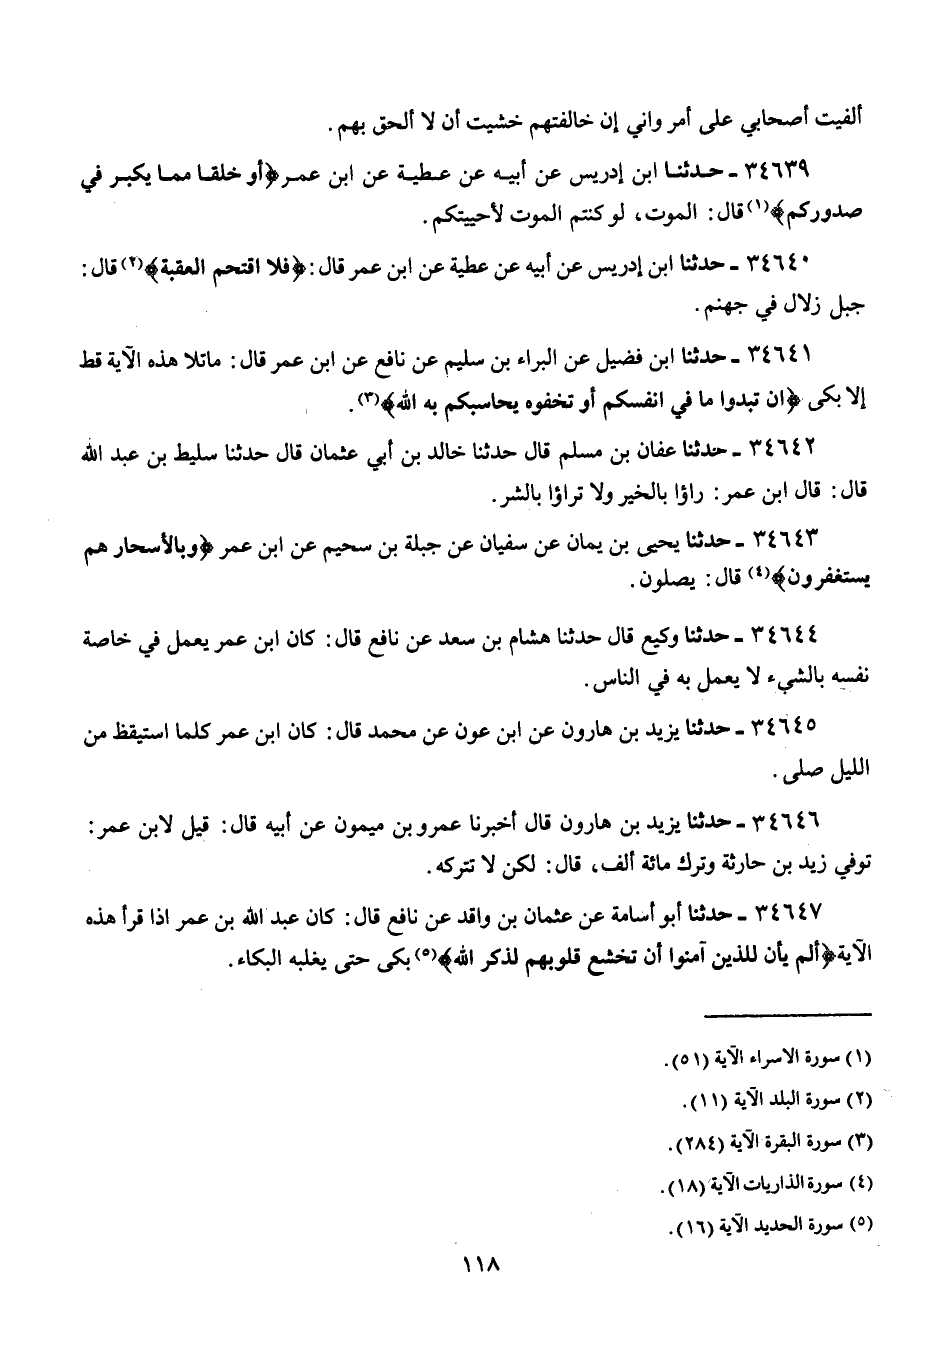 ألفيت أصحابي على أمر واني إن خالفتهم خشيت أن لا ألحق بهم.
٣٤٦٣٩ ـ حدثنا ابن إدريس عن أبيه عن عطية عن ابن عمر ﴿أو خلقا مما يكبر في
صدوركم﴾(١) قال: الموت، لو كنتم الموت لأحييتكم.
٣٤٦٤٠ ـ حدثنا ابن إدريس عن أبيه عن عطية عن ابن عمر قال: ﴿فلا اقتحم العقبة﴾(٢) قال:
جبل زلال في جهنم.
٣٤٦٤١ ـ حدثنا ابن فضيل عن البراء بن سليم عن نافع عن ابن عمر قال: ماتلا هذه الآية قط
إلا بكى ﴿ان تبدوا ما في انفسكم أو تخفوه يحاسبكم به الله﴾(٣).
٣٤٦٤٢ ـ حدثنا عفان بن مسلم قال حدثنا خالد بن أبي عثمان قال حدثنا سليط بن عبد الله
قال: قال ابن عمر: راؤا بالخير ولا تراؤا بالشر.
٣٤٦٤٣ ـ حدثنا يحيى بن يمان عن سفيان عن جبلة بن سحيم عن ابن عمر ﴿وبالأسحار هم
يستغفرون﴾(٤) قال: يصلون.
٣٤٦٤٤ ـ حدثنا وكيع قال حدثنا هشام بن سعد عن نافع قال: كان ابن عمر يعمل في خاصة
نفسه بالشيء لا يعمل به في الناس.
٣٤٦٤٥ ـ حدثنا يزيد بن هارون عن ابن عون عن محمد قال: كان ابن عمر كلما استيقظ من
الليل صلى.
٣٤٦٤٦ ـ حدثنا يزيد بن هارون قال أخبرنا عمرو بن ميمون عن أبيه قال: قيل لابن عمر:
توفي زيد بن حارثة وترك مائة ألف، قال: لكن لا تتركه.
٣٤٦٤٧ ـ حدثنا أبو أسامة عن عثمان بن واقد عن نافع قال: كان عبد الله بن عمر اذا قرأ هذه
الآية ﴿ألم يأن للذين آمنوا أن تخشع قلوبهم لذكر الله﴾(٥) بكى حتى يغلبه البكاء.
(١) سورة الاسراء الآية (٥١).
(٢) سورة البلد الآية (١١).
(٣) سورة البقرة الآية (٢٨٤).
(٤) سورة الذاريات الآية (١٨).
(٥) سورة الحديد الآية (١٦).
١١٨